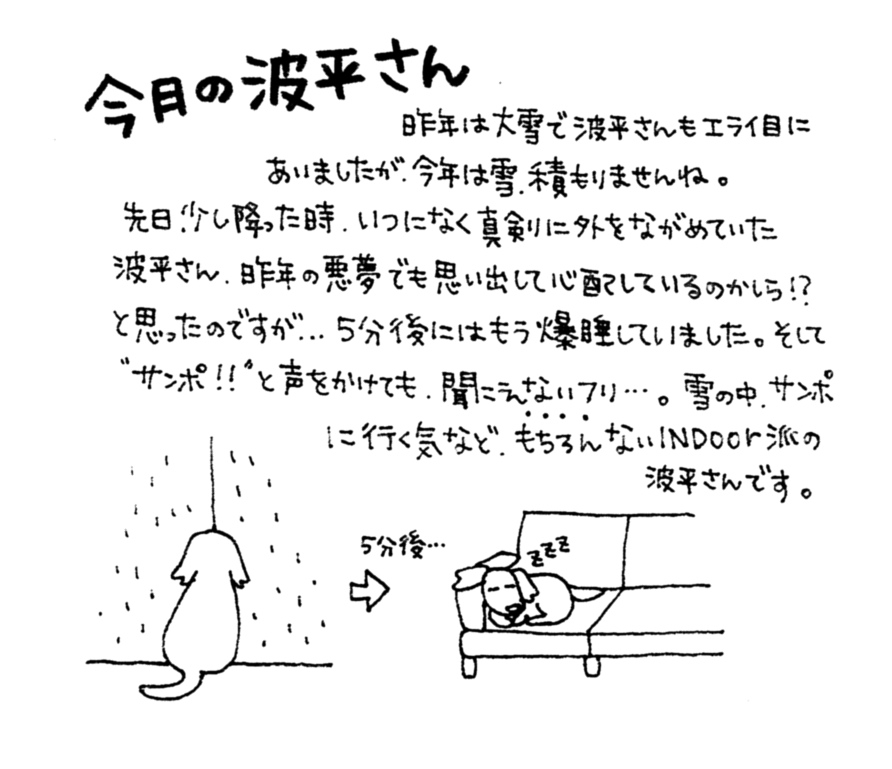 今月の波平さん
昨年は大雪で波平さんもエライ目に
あいましたが、今年は雪、積もりませんね。
先日、少し降った時、いつになく真剣に外をながめていた
波平さん、昨年の悪夢でも思い出して心配しているのかしら!?
と思ったのですが… 5分後にはもう爆睡していました。そして
"サンポ!!"と声をかけても、聞こえないフリ…。雪の中、サンポ
に行く気など、もちろんないINDoor派の
波平さんです。
5分後…
zzz